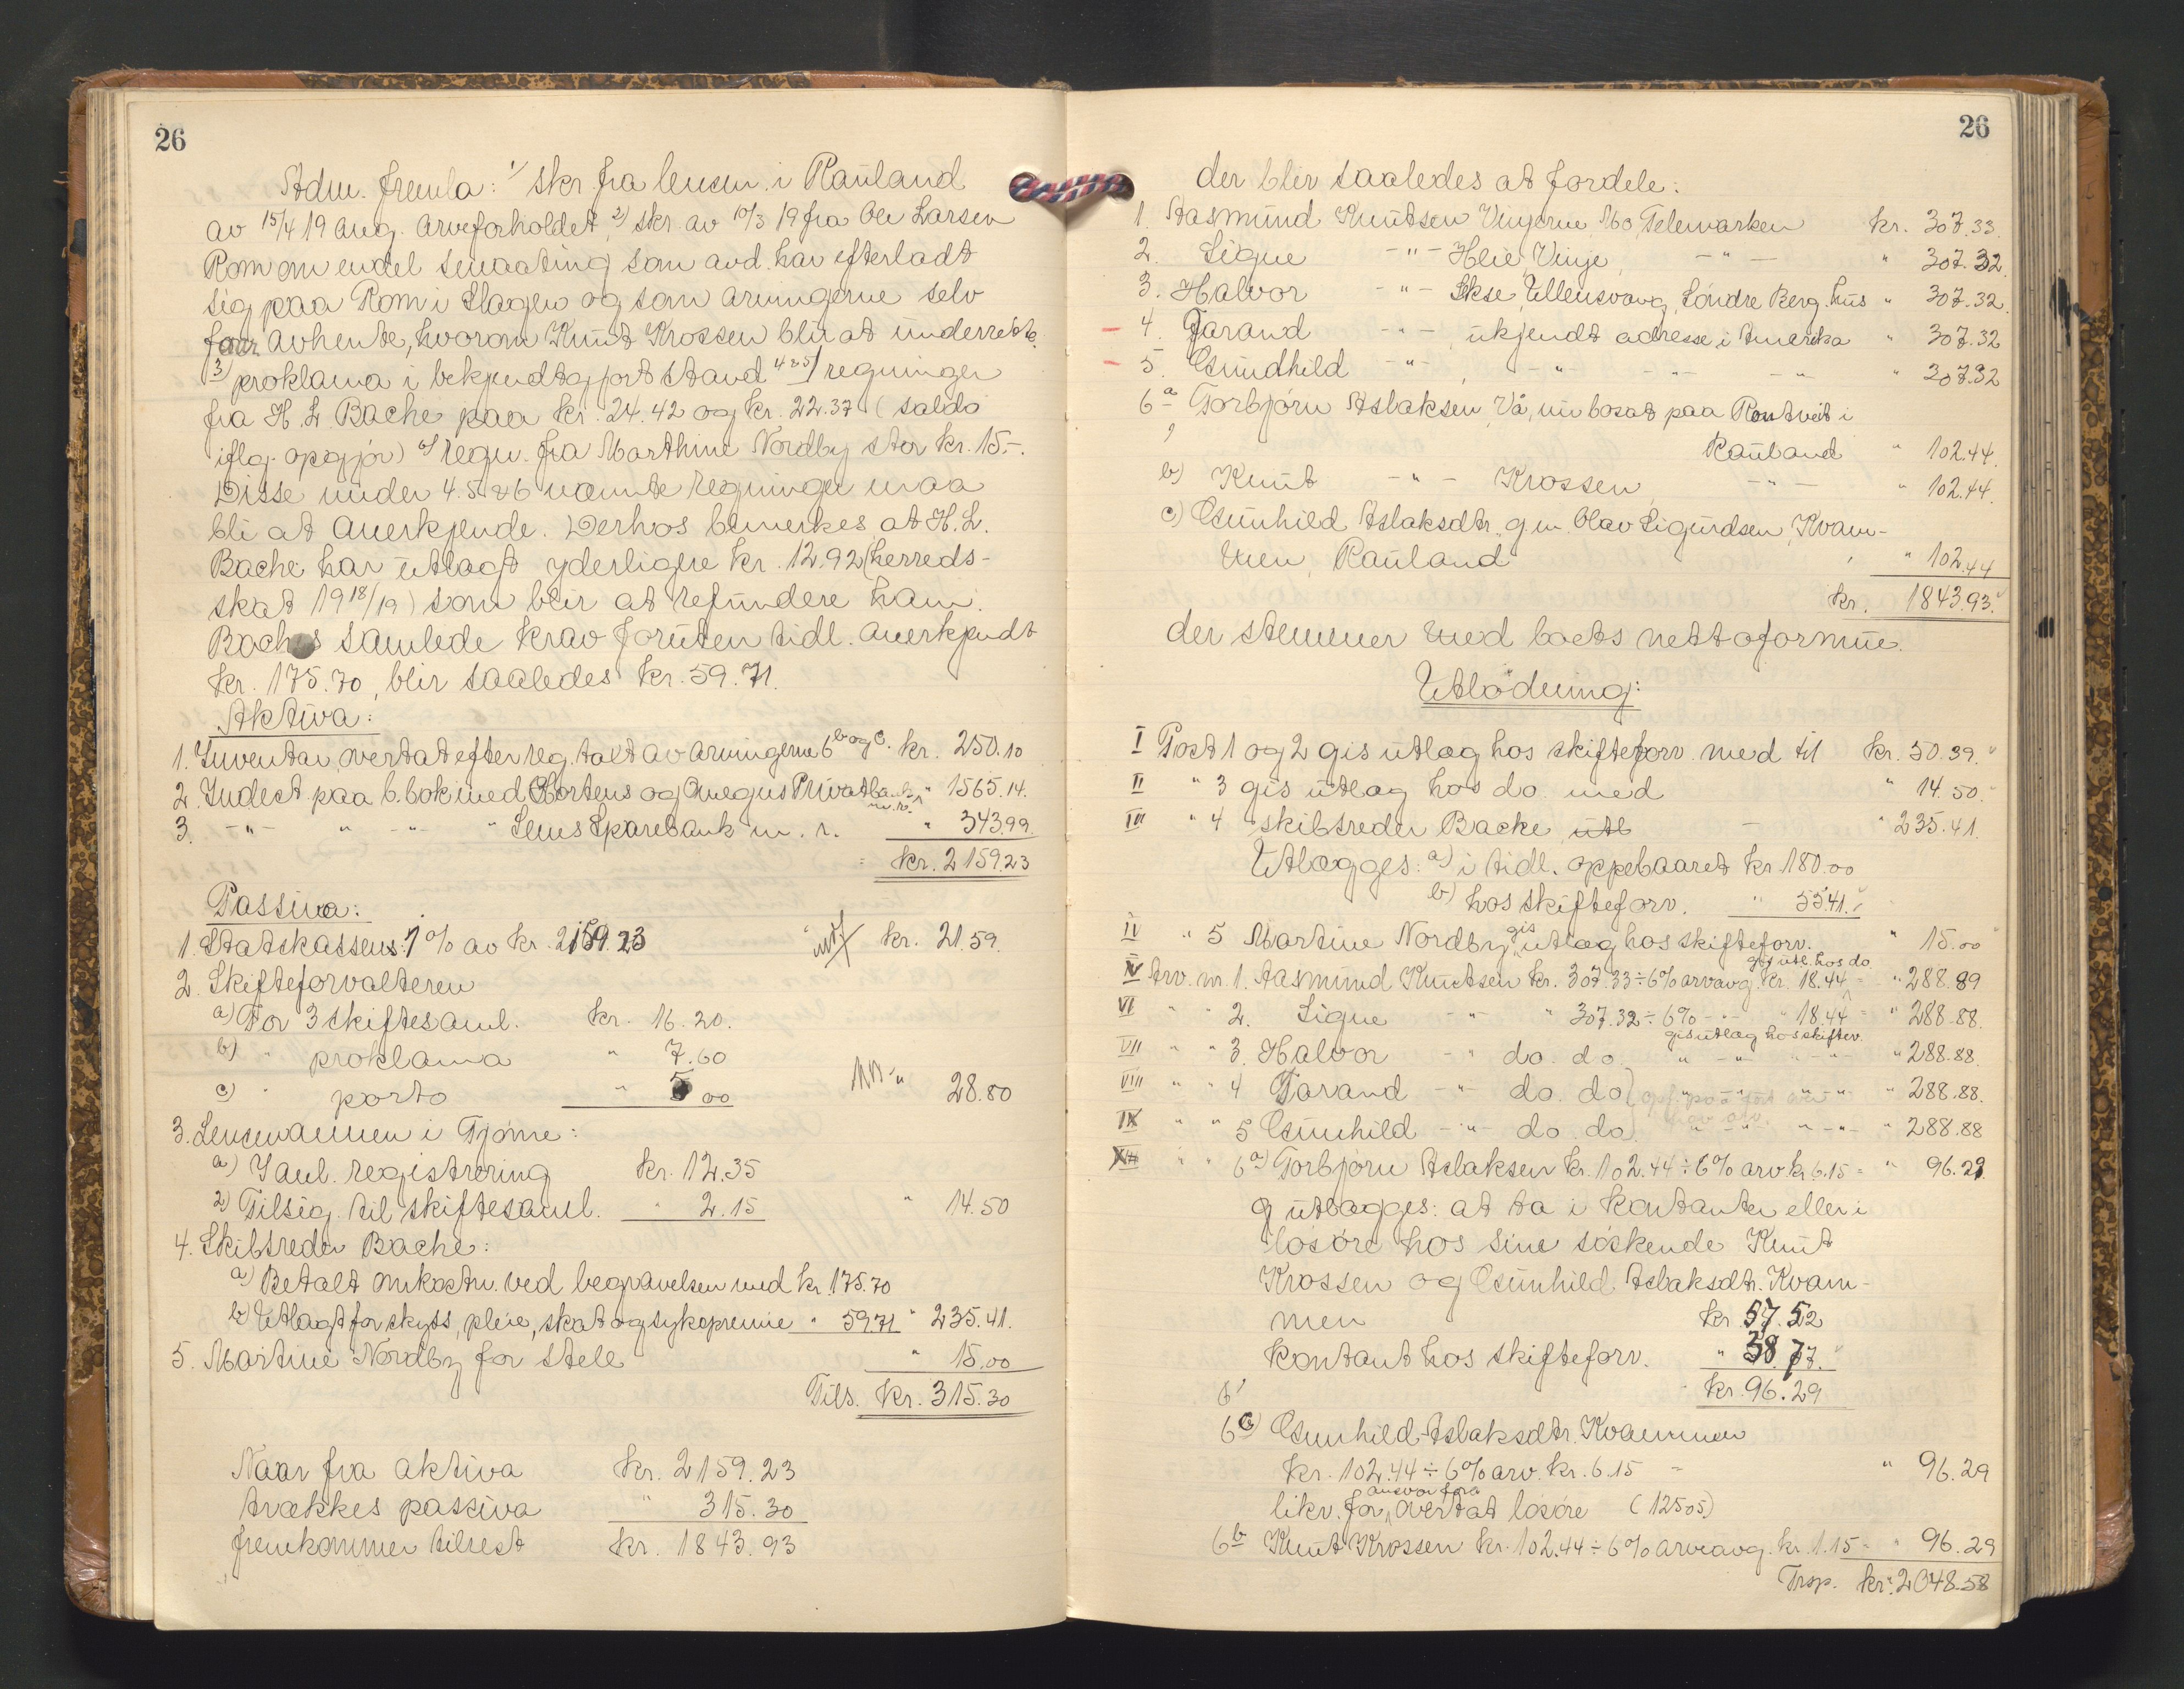 26
Adm. fremla: 1/ skr. fra lensm. i Rauland
av 15/4 19 ang. arveforholdet, 2) skr. av 10/3 19 fra Ole Larsen
Rom om endel smaating som avd. har efterladt
sig paa Rom i Slagen og som arvingerne selv
faar avhente, hvorom Knut Krossen blir at underrette.
3) proklama i bekjendtgjort stand 4 & 5/ regninger
fra H. L. Bache paa kr. 24.42 og kr. 22.37 (saldo
iflg. opgjør) 6/ regn. fra Marthine Nordby stor kr. 15.-.
Disse under 4. 5 & 6 nævnte regninger maa
bli at anerkjende. Derhos bemerkes at H. L.
Bache har utlagt yderligere kr. 12.92 (herreds-
skat 1918/19) som blir at refundere ham.
Baches samlede krav foruten tidl. anerkjendt
kr. 175.70, blir saaledes kr. 59.71.
Aktiva:
1. Inventar, overtat efter reg. takt av arvingerne 6 b og c. kr. 250.10
2. Indest. paa b. bok med Hortens og Omegns Privatbank m. r. " 1565.14.
3. -"- " -"- " Sems Sparebank m. r. " 343.99
kr. 2159.23
Passiva:
1. Statskassens: 1 % av kr. 2159.23 kr. 21.59.
2. Skifteforvalteren
a) For 3 skiftesaml. kr. 16.20.
b) " proklama " 7.60
c) " porto " 5.00 " 28.80
3. Lensmannen i Tjøme:
a) I anl. registrering kr. 12.35
2) Tilsig. til skiftesaml. " 2.15 " 14.50
4. Skibsreder Bache:
a) Betalt omkostn. ved begravelsen med kr. 175.70
b) Utlagt for skyss, pleie, skat og sykepremie " 59.71 " 235.41.
5. Martine Nordby for stell " 15.00
Tils. kr. 315.30
Naar fra aktiva kr. 2159.23
trækkes passiva " 315.30
fremkommer tilrest kr. 1843.93
26
der blir saaledes at fordele:
1. Aasmund Knutsen Vingerne, Mo, Telemarken kr. 307.33.
2. Signe -"- Heie, Vinje, -"- " 307.32.
3. Halvor -"- Ekse, Ullensvang, Søndre Berg. hus " 307.32.
4. Tarand -"- ukjendt adresse i Amerika " 307.32
5. Gundhild -"-, -"- -"- -"- " 307.32
6 a Torbjørn Aslaksen, Vå, nu bosat paa Rontveit i
Rauland " 102.44.
b) Knut -"- Krossen, -"- " 102.44.
c) Gunhild Aslaksdtr. g. m. Olav Sigurdsen, Kvam-
men, Rauland " 102.44
kr. 1843.93.
der stemmer med boets nettoformue.
Utlodning:
I Post 1 og 2 gis utlæg hos skifteforv. med til kr. 50.39.
II " 3 gis utlæg hos do. med " 14.50.
III " 4 skibsreder Backe utl - " 235.41.
Utlægges: a) i tidl. oppebaaret kr. 180.00
b) hos skifteforv. " 55.41.
IV " 5 Martine Nordby gis utlæg hos skifteforv. " 15.00
gis utl. hos do
V Arv. nr. 1. Aasmund Knutsen kr. 307.33 ÷ 6% arveavg. kr. 18.44 = " 288.89
VI " " 2. Signe -"- " 307.32 ÷ 6% -"- " 18.44 = " 288.88.
gis utlæg hos skiftev.
VII " " 3. Halvor -"- do. do. " -"- "-"- " 288.88
VIII " " 4 Tarand -"- do. do. " -"- "-"- " 288.88.
IX " " 5 Gunhild -"- do. do. " -"- "-"- " 288.88
" " 6 a) Torbjørn Aslaksen kr. 102.44 ÷ 6% arv. kr. 6.15 = " 96.29.
g utlægges: at ta i kontanter eller i
løsøre hos sine søskende Knut
Krossen og Gunhild Aslaksdtr. Kvam-
men kr. 57.52
kontant hos skifteforv. " 38.77.
kr. 96.29
6 c) Gunhild Aslaksdtr. Kvammen
kr. 102.44 ÷ 6% arv. kr. 6.15 = " 96.29
likv. for ansvar for overtat løsøre (125.05)
6 b Knut Krossen kr. 102.44 ÷ 6% arveavg. kr. 1.15 = " 96.29
Trsp. kr. 2048.58